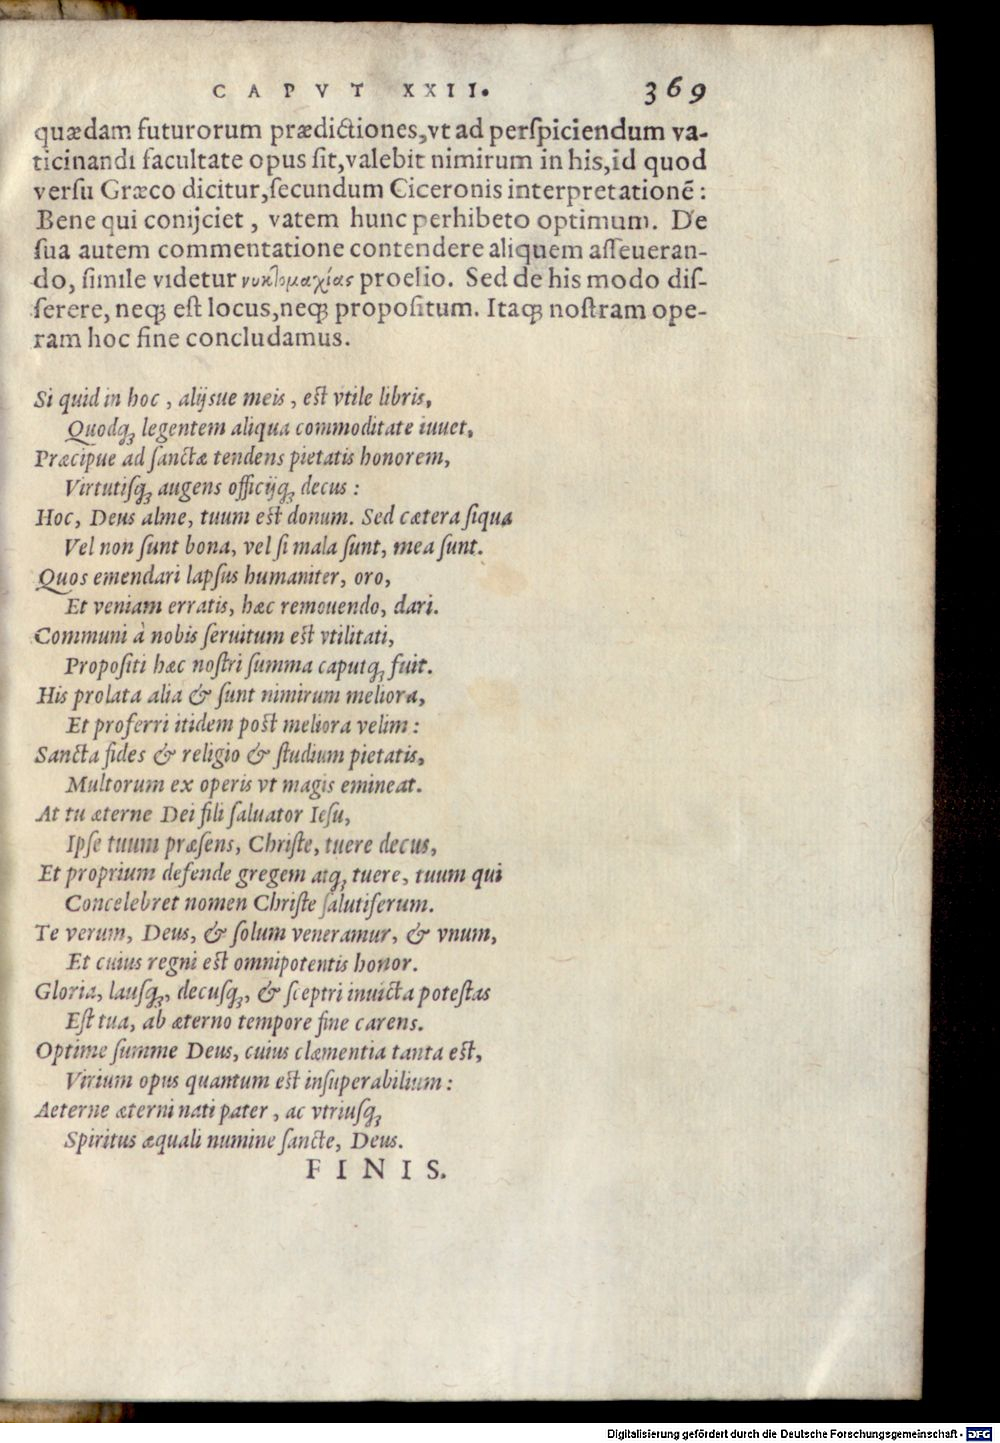 CAPVT XXII. 369
quædam futurorum prædictiones, vt ad perſpiciendum va-
ticinandi facultate opus ſit, valebit nimirum in his, id quod
verſu Græco dicitur, ſecundum Ciceronis interpretationē:
Bene qui conijciet, vatem hunc perhibeto optimum. De
ſua autem commentatione contendere aliquem aſſeueran-
do, ſimile videtur νυκτομαχίας proelio. Sed de his modo diſ-
ſerere, neqꝫ eſt locus, neqꝫ propoſitum. Itaqꝫ noſtram ope-
ram hoc fine concludamus.
Si quid in hoc, alijsue meis, eſt vtile libris,
Quodqꝫ legentem aliqua commoditate iuuet,
Præcipue ad ſanctæ tendens pietatis honorem,
Virtutiſqꝫ augens officijqꝫ decus:
Hoc, Deus alme, tuum eſt donum. Sed cætera ſiqua
Vel non ſunt bona, vel ſi mala ſunt, mea ſunt.
Quos emendari lapſus humaniter, oro,
Et veniam erratis, hæc remouendo, dari.
Communi à nobis ſeruitum eſt vtilitati,
Propoſiti hæc noſtri ſumma caputqꝫ fuit.
His prolata alia & ſunt nimirum meliora,
Et proferri itidem poſt meliora velim:
Sancta fides & religio & ſtudium pietatis,
Multorum ex operis vt magis emineat.
At tu æterne Dei fili ſaluator Ieſu,
Ipſe tuum præſens, Chriſte, tuere decus,
Et proprium defende gregem atqꝫ tuere, tuum qui
Concelebret nomen Chriſte ſalutiferum.
Te verum, Deus, & ſolum veneramur, & vnum,
Et cuius regni eſt omnipotentis honor.
Gloria, lauſqꝫ, decuſqꝫ, & ſceptri inuicta poteſtas
Eſt tua, ab æterno tempore fine carens.
Optime ſumme Deus, cuius clæmentia tanta eſt,
Virium opus quantum eſt inſuperabilium:
Aeterne æterni nati pater, ac vtriuſqꝫ
Spiritus æquali numine ſancte, Deus.
FINIS.
Digitalisierung gefördert durch die Deutsche Forschungsgemeinschaft - DFG